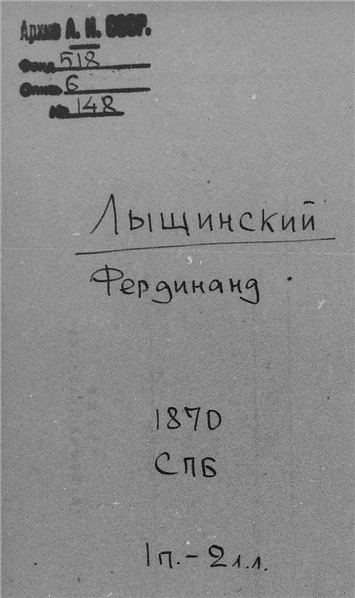 Архив А. Н. СССР.
Фонд 518
Опись 6
№ 148
Лыщинский
Фердинанд.
1870
СПБ
1п.-2л.л.